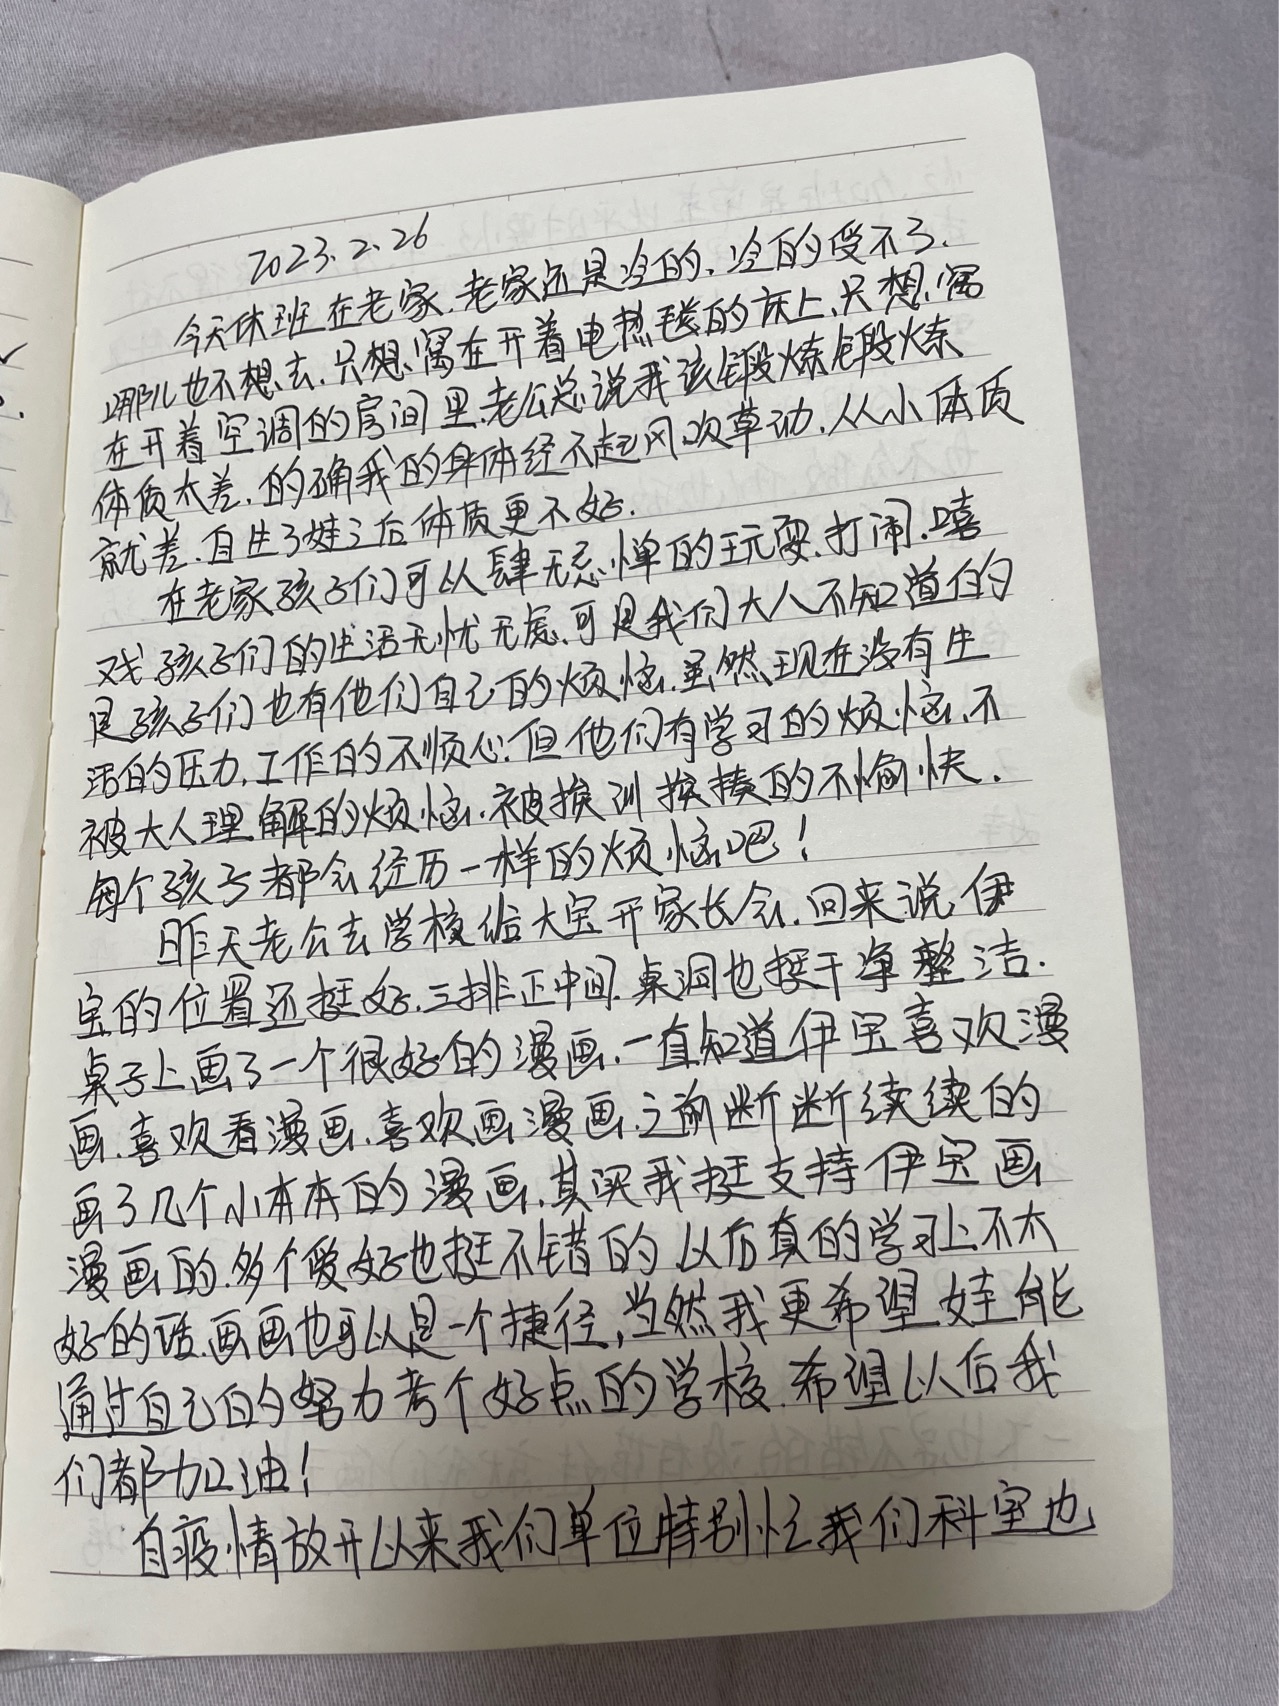 2023.2.26
今天休班在老家.老家还是冷的.冷的受不了.
哪儿也不想去.只想窝在开着电热毯的床上.只想窝
在开着空调的房间里.老公总说我该锻炼锻炼
体质太差.的确我的身体经不起风吹草动.从小体质
就差.自生了娃之后体质更不好.
在老家孩子们可以肆无忌惮的玩耍.打闹.嘻
戏.孩子们的生活无忧无虑.可是我们大人不知道的
是孩子们也有他们自己的烦恼.虽然现在没有生
活的压力.工作的不顺心.但他们有学习的烦恼.不
被大人理解的烦恼.被挨训挨揍的不愉快.
每个孩子都会经历一样的烦恼吧!
昨天老公去学校给大宝开家长会.回来说伊
宝的位置还挺好.三排正中间.桌洞也挺干净整洁.
桌子上画了一个很好的漫画.一直知道伊宝喜欢漫
画.喜欢看漫画.喜欢画漫画.之前断断续续的
画了几个小本本的漫画.其实我挺支持伊宝画
漫画的.多个爱好也挺不错的.以后真的学习上不太
好的话.画画也可以是一个捷径,当然我更希望娃能
通过自己的努力考个好点的学校.希望以后我
们都加油!
自疫情放开以来我们单位特别忙.我们科室也